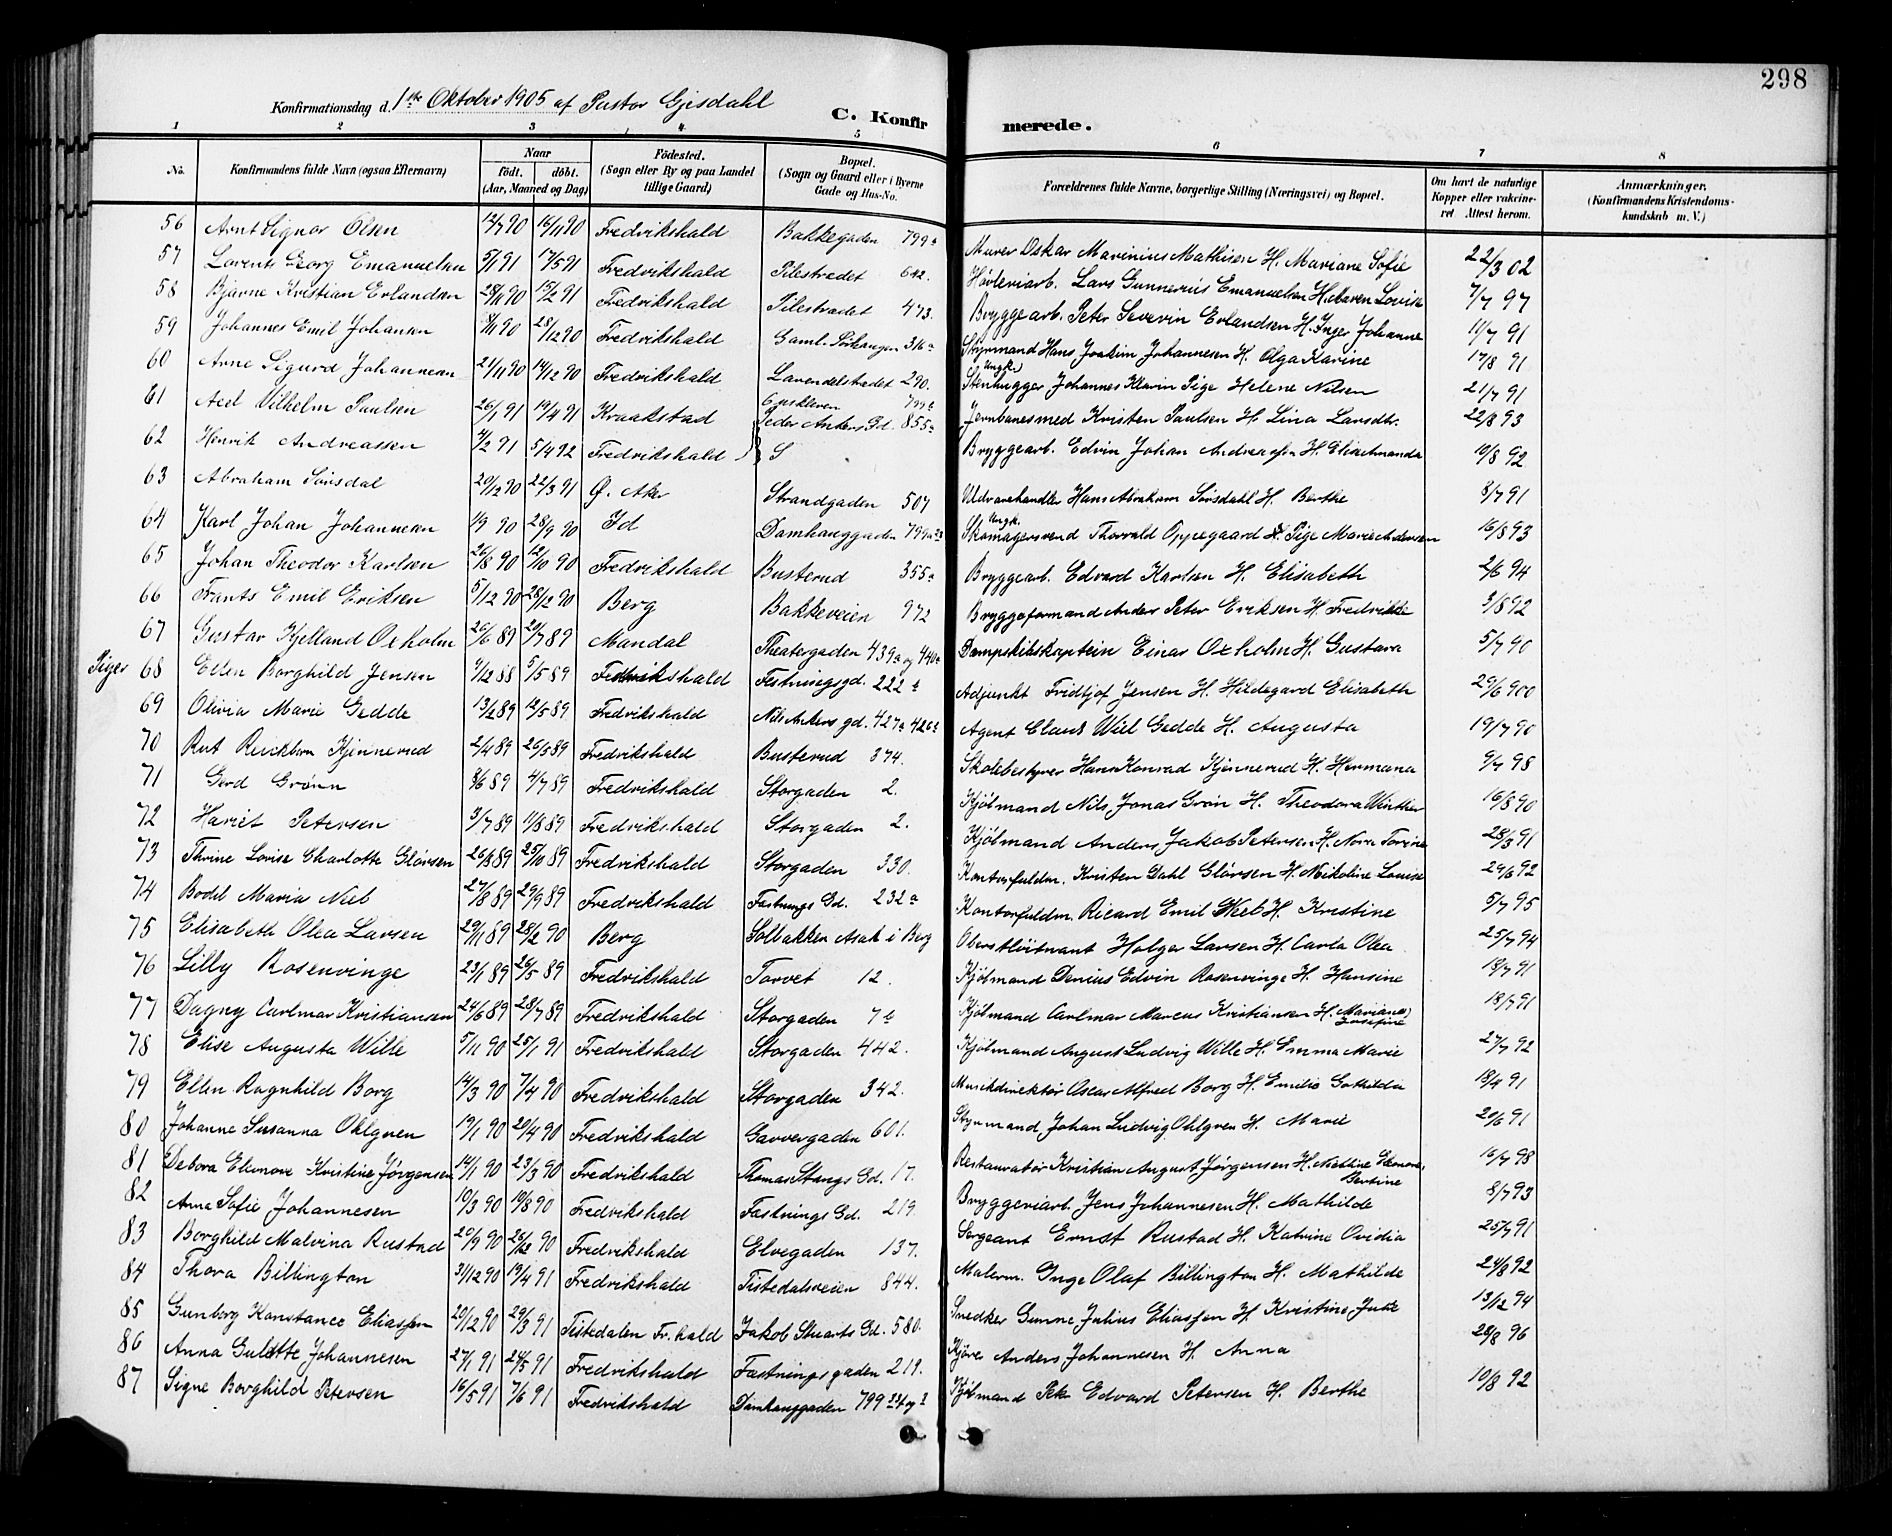 298
Konfirmationsdag d. 1ste Oktober 1905 af Pastor Gjesdahl
C. Konfirmerede.
1 2 3 4 5 6 7 8
No. Konfirmandens fulde Navn (ogsaa Efternavn) Naar født. døbt. (Aar, Maaned og Dag) Fødested. (Sogn eller By og paa Landet tillige Gaard) Bopæl. (Sogn og Gaard eller i Byerne Gade og Hus-No. Forældrenes fulde Navne, borgerlige Stilling (Næringsvei) og Bopæl. Om havt de naturlige Kopper eller vakcineret Attest herom. Anmærkninger. (Konfirmandens Kristendomskundskab m. V.)
56 Arnt Signor Olsen 12/7 90 16/11 90 Fredrikshald Bakkegaden 799a Murer Oskar Marinius Mathisen H. Mariane Sofie 22/3 02
57 Lorents Georg Emanuelsen 5/1 91 17/5 91 Fredrikshald Pilestrædet 642. Høvleriarb. Lars Gunnerius Emanuelsen H. Maren Lovise 7/7 97
58 Bjarne Kristian Erlandsen 28/11 90 15/2 91 Fredrikshald Pilestrædet 473. Bryggearb. Peter Severin Erlandsen H. Inger Johanne 11/7 91
59 Johannes Emil Johansen 8/11 90 28/12 90 Fredrikshald Gaml. 316a Styrmand Hans Joakim Johannesen H. Olga Karine 17/8 91
60 Arne Sigurd Johannesen 21/11 90 14/12 90 Fredrikshald Lavendelstrædet 290. Ungk. Stenhugger Johannes Klavin Pige Helene Nilsen 21/7 91
61 Axel Vilhelm Paulsen 26/1 91 19/4 91 Kraakstad Peder Ankers Gd. 855a Jernbanesmed Kristen Paulsen H. Lina Larsdtr. 22/8 93
62 Henrik Andreassen 4/2 91 5/4 92 Fredrikshald Bryggearb. Edvin Johan Andreassen H. Elise Amanda 10/8 92
63 Abraham Sørsdal 20/12 90 22/3 91 Ø. Aker Strandgaden 507 Uldvarehandler Hans Abraham Sørsdahl H. Berthe 8/7 91
64 Karl Johan Johannesen 1/9 90 28/9 90 Id Damhauggaden 799 Ungk. Skomagersvend Thorvald Oppegaard Pige Marie Andersen 16/8 93
65 Johan Theodor Karlsen 26/8 90 12/10 90 Fredrikshald Busterud 355a Bryggearb. Edvard Karlsen H. Elisabeth 2/6 94
66 Frants Emil Eriksen 5/12 90 28/12 90 Berg Bakkeveien 972 Bryggeformand Anders Peter Eriksen H. Fredrikke 3/8 92
67 Gustav Kjelland Oxholm 26/6 89 20/7 89 Mandal Theatergaden 439a og 440a Dampskibskaptein Einar Oxholm H. Gustava 5/7 90
Piger 68 Ellen Borghild Jensen 9/12 88 5/5 89 Fredrikshald Festningsgd. 222a Adjunkt Fridtjof Jensen H. Hildegard Elisabeth 29/6 900
69 Olivia Marie Gedde 13/2 89 12/5 89 Fredrikshald Nils Ankers gd. 427a 426a Agent Claus Wiel Gedde H. Augusta 19/7 90
70 Rut Kjinnerud 2/4 89 26/5 89 Fredrikshald Busterud 374. Skolebestyrer Hans Konrad Kjinnerud H. Hermana 9/7 98
71 Gerd Grønn 8/6 89 4/7 89 Fredrikshald Storgaden 2. Kjøbmand Nils Jonas Grøn H. Theodora Winther 16/8 90
72 Hariet Petersen 3/7 89 11/8 89 Fredrikshald Storgaden 2. Kjøbmand Anders Jakob Petersen H. Nora Torine 28/3 91
73 Thrine Lovise Charlotte Glørsen 26/8 89 25/10 89 Fredrikshald Storgaden 330. Kontorfuldm. Kristen Dahl Glørsen H. Nikoline Louise 29/6 92
74 Bodil Maria Neeb 27/8 89 29/9 89 Fredrikshald Fæstnings Gd. 232a Kontorfuldm. Ricard Emil Neeb H. Kristine 5/7 95
75 Elisabeth Olea Larsen 29/11 89 28/2 90 Berg Solbakken Asak i Berg Oberstløitnant Holger Larsen H. Carla Olea 25/7 94
76 Lilly Rosenvinge 23/1 89 26/5 89 Fredrikshald Torvet 12. Kjøbmand Denius Edvin Rosenvinge H. Hansine 18/7 91
77 Dagny Carlmar Kristiansen 24/6 89 28/7 89 Fredrikshald Storgaden 7a Kjøbmand Carlmar Marcus Kristiansen H. Mariane Josefine 18/7 91
78 Elise Augusta Wille 5/11 90 25/1 91 Fredrikshald Storgaden 442. Kjøbmand August Ludvig Wille H. Emma Marie 27/7 92
79 Ellen Ragnhild Borg 14/3 90 7/4 90 Fredrikshald Storgaden 342. Musikdirektør Oscar Alfred Borg H. Emilie Gothilda 18/4 91
80 Johanne Susanna Ohlgren 19/1 90 20/4 90 Fredrikshald Garvergaden 601. Styrmand Johan Ludvig Ohlgren H. Marie 20/6 91
81 Debora Elenore Kristine Jørgensen 14/1 90 23/3 90 Fredrikshald Thomas Stangs Gd. 17. Restauratør Kristian August Jørgensen H. Mathine Eleonora Bertine 16/7 98
82 Anna Sofie Johannesen 10/3 90 10/8 90 Fredrikshald Fæstnings Gd. 219. Bryggeriarb. Jens Johannesen H. Mathilde 8/7 93
83 Borghild Malvina Rustad 20/9 90 26/12 90 Fredrikshald Elvegaden 137. Sergeant Ernst Rustad H. Katrine Ovidia 25/7 91
84 Thora Billington 31/12 90 19/4 91 Fredrikshald Tistedalsveien 844. Malerm. Inge Olaf Billington H. Mathilde 24/8 92
85 Gunborg Konstance Eliassen 20/12 90 29/3 91 Tistedalen Fr.hald Jakob Stuarts Gd. 580. Snedker Gunne Julius Eliassen H. Kristine Jutte 13/12 94
86 Anna Gulette Johannesen 27/1 91 24/5 91 Fredrikshald Fæstningsgaden 219. Kjøre Anders Johannesen H. Anna 28/8 96
87 Signe Borghild Petersen 16/5 91 7/6 91 Fredrikshald Damhauggaden 799 Kjøbmand Edvard Petersen H. Berthe 10/8 92